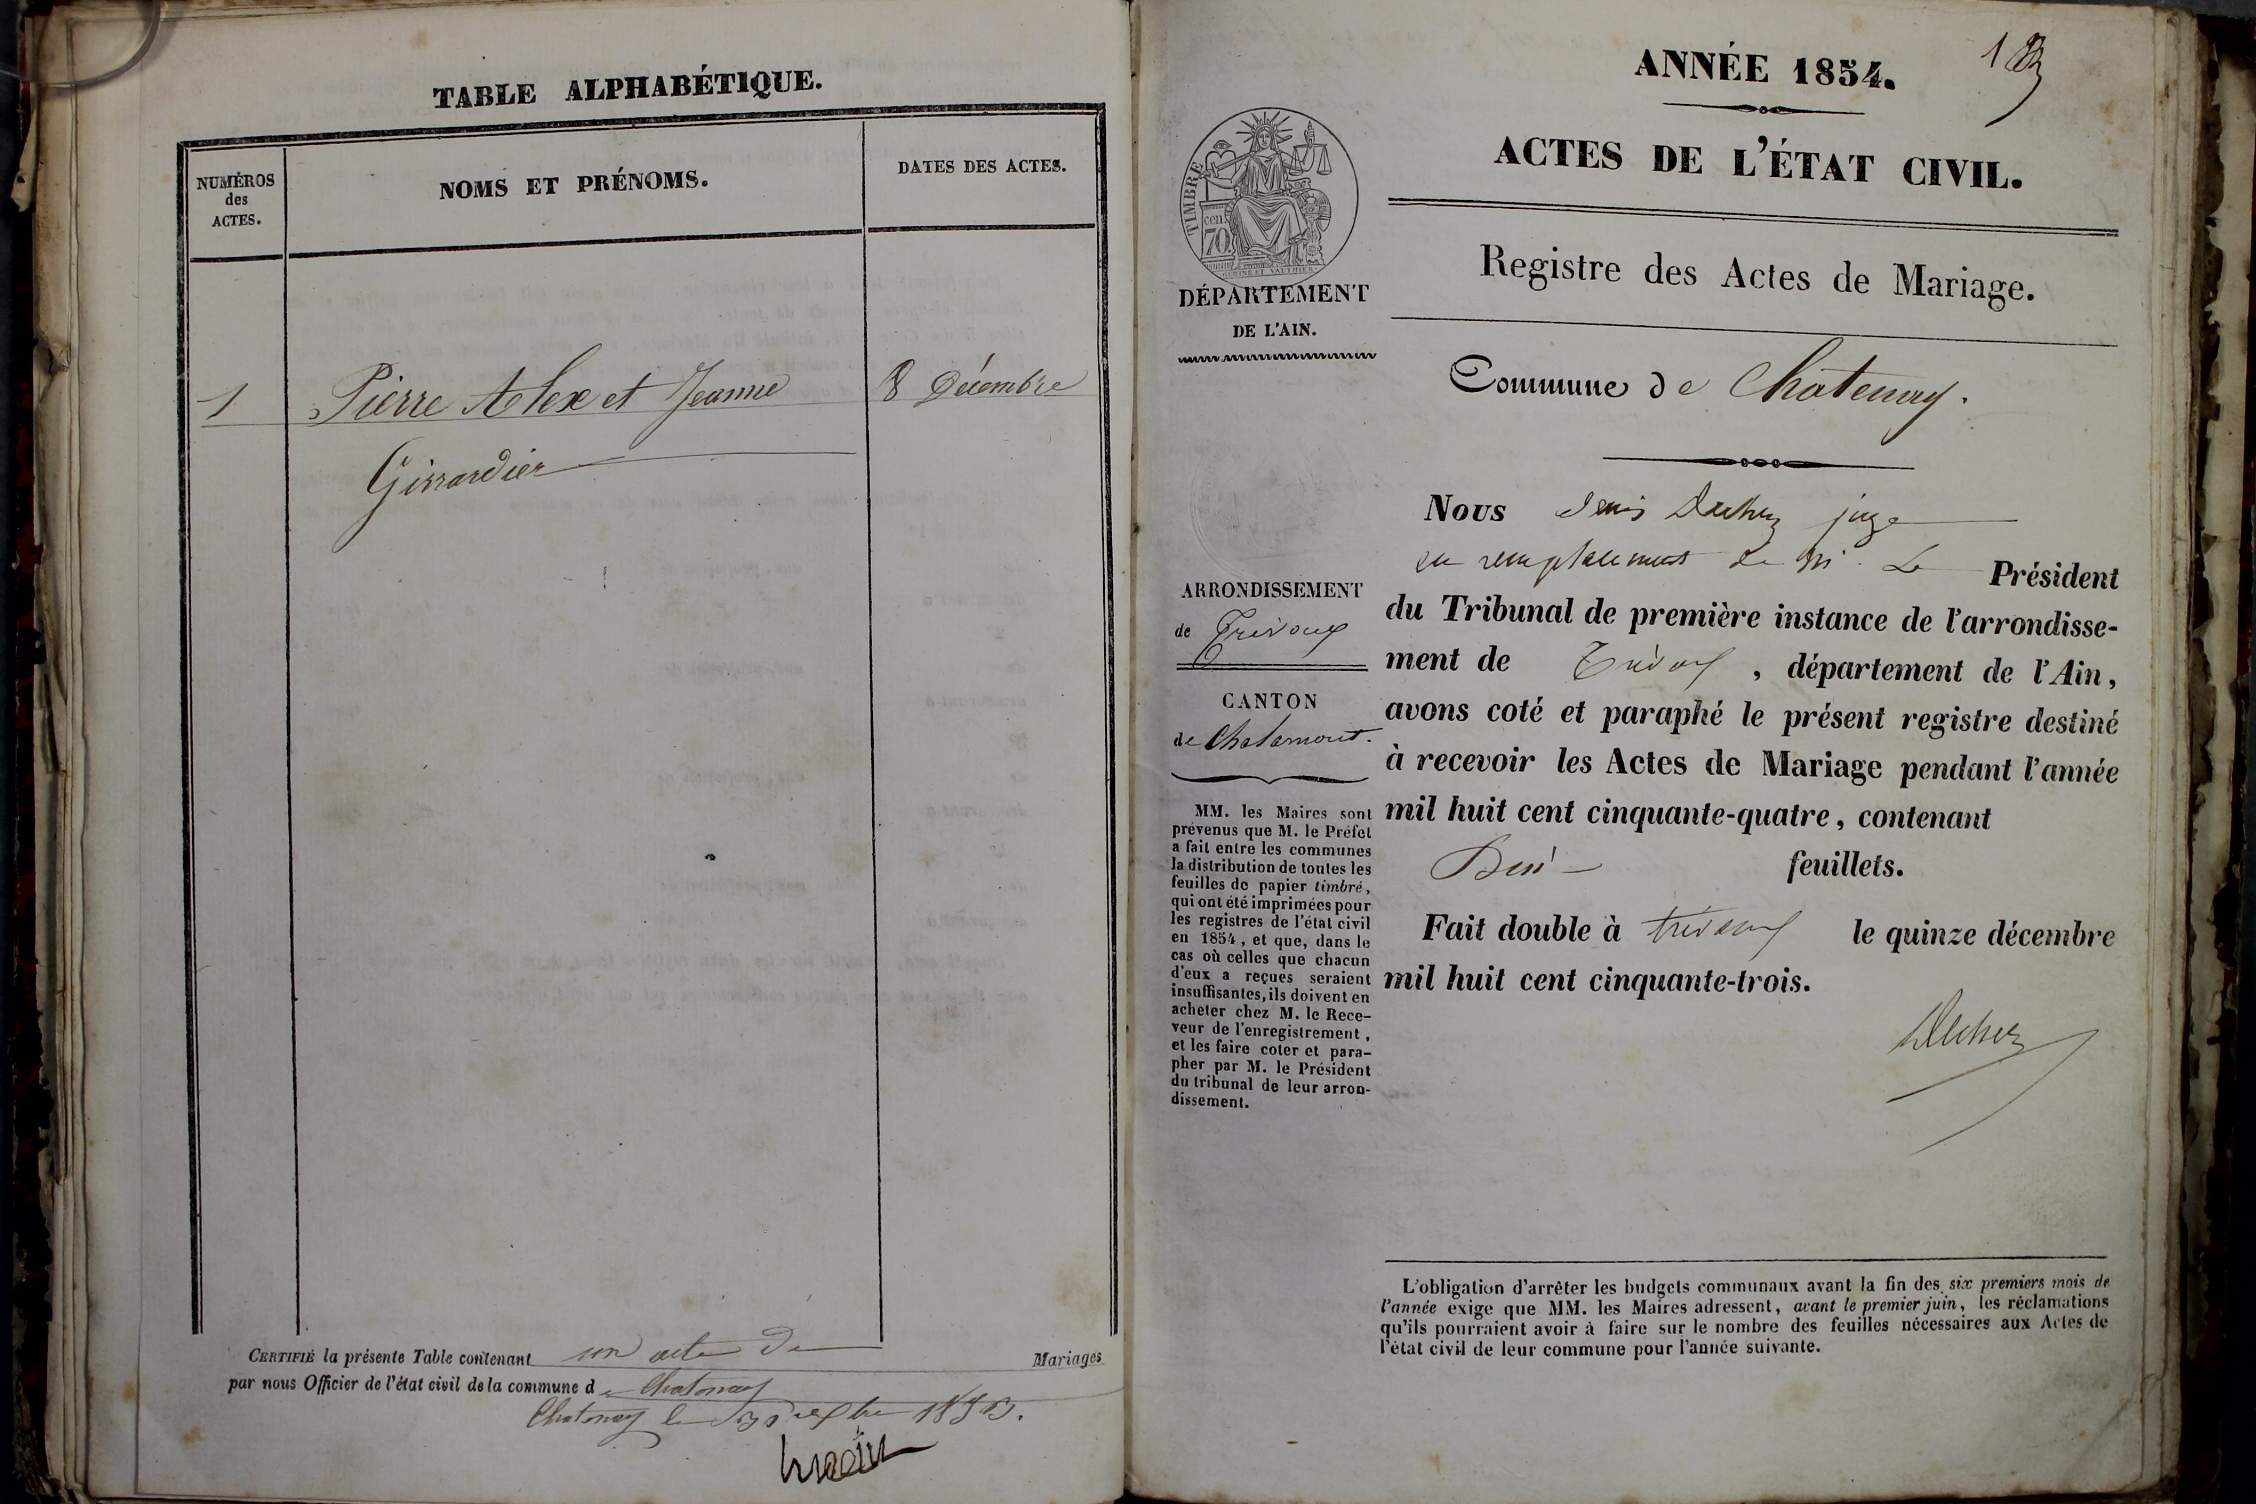 TABLE ALPHABÉTIQUE.
NUMÉROS
des
ACTES.
NOMS ET PRÉNOMS.
DATES DES ACTES.
1 Pierre Alex et Jeanne 8 Décembre
Girrardier
CERTIFIÉ la présente Table contenant un acte de Mariages
par nous Officier de l'état civil de la commune de Chatenay
Chatenay le 1853.
ANNÉE 1854.
1
ACTES DE L'ÉTAT CIVIL.
TIMBRE
70 cen.
DÉPARTEMENT
DE L'AIN.
Registre des Actes de Mariage.
Commune de Châtenay.
ARRONDISSEMENT
de Trévoux
CANTON
de Chalamont.
MM. les Maires sont
prévenus que M. le Préfet
a fait entre les communes
la distribution de toutes les
feuilles de papier timbré,
qui ont été imprimées pour
les registres de l'état civil
en 1854, et que, dans le
cas où celles que chacun
d'eux a reçues seraient
insuffisantes, ils doivent en
acheter chez M. le Rece-
veur de l'enregistrement,
et les faire coter et para-
pher par M. le Président
du tribunal de leur arron-
dissement.
Nous Denis juge
en remplacement de M. Le Président
du Tribunal de première instance de l'arrondisse-
ment de Trévoux, département de l'Ain,
avons coté et paraphé le présent registre destiné
à recevoir les Actes de Mariage pendant l'année
mil huit cent cinquante-quatre, contenant
feuillets.
Fait double à trévoux le quinze décembre
mil huit cent cinquante-trois.
L'obligation d'arrêter les budgets communaux avant la fin des six premiers mois de
l'année exige que MM. les Maires adressent, avant le premier juin, les réclamations
qu'ils pourraient avoir à faire sur le nombre des feuilles nécessaires aux Actes de
l'état civil de leur commune pour l'année suivante.